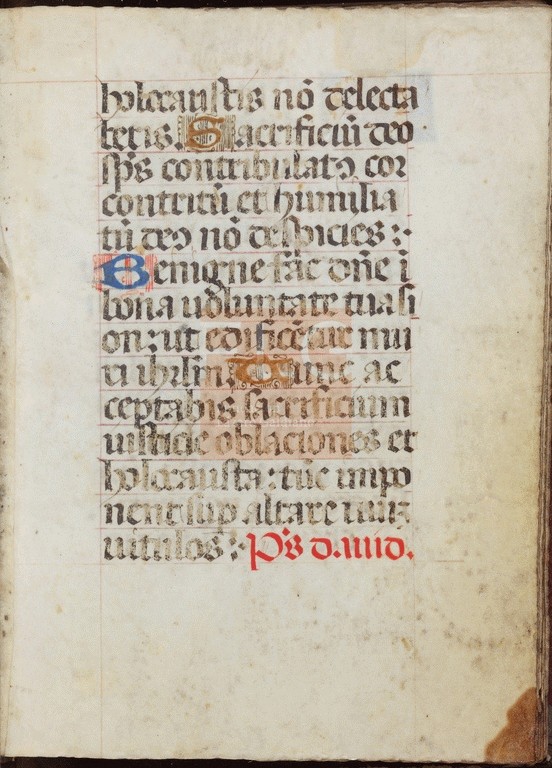 holocaustis nō delecta
beris. Sacrificiū deo
sp̄s contribulatꝰ cor
contritū et humilia
tū deꝰ nō despicies :·
Benigne fac dn̄e ī
bona uoluntate tua si
on : ut edificētur mu
ri ihrlm̄ : Tunc ac
ceptabis sacrificium
iusticie oblaciones et
holocausta : tūc impo
nent sup altare tuuȝ
uitulos :· Ps̄ dauid.